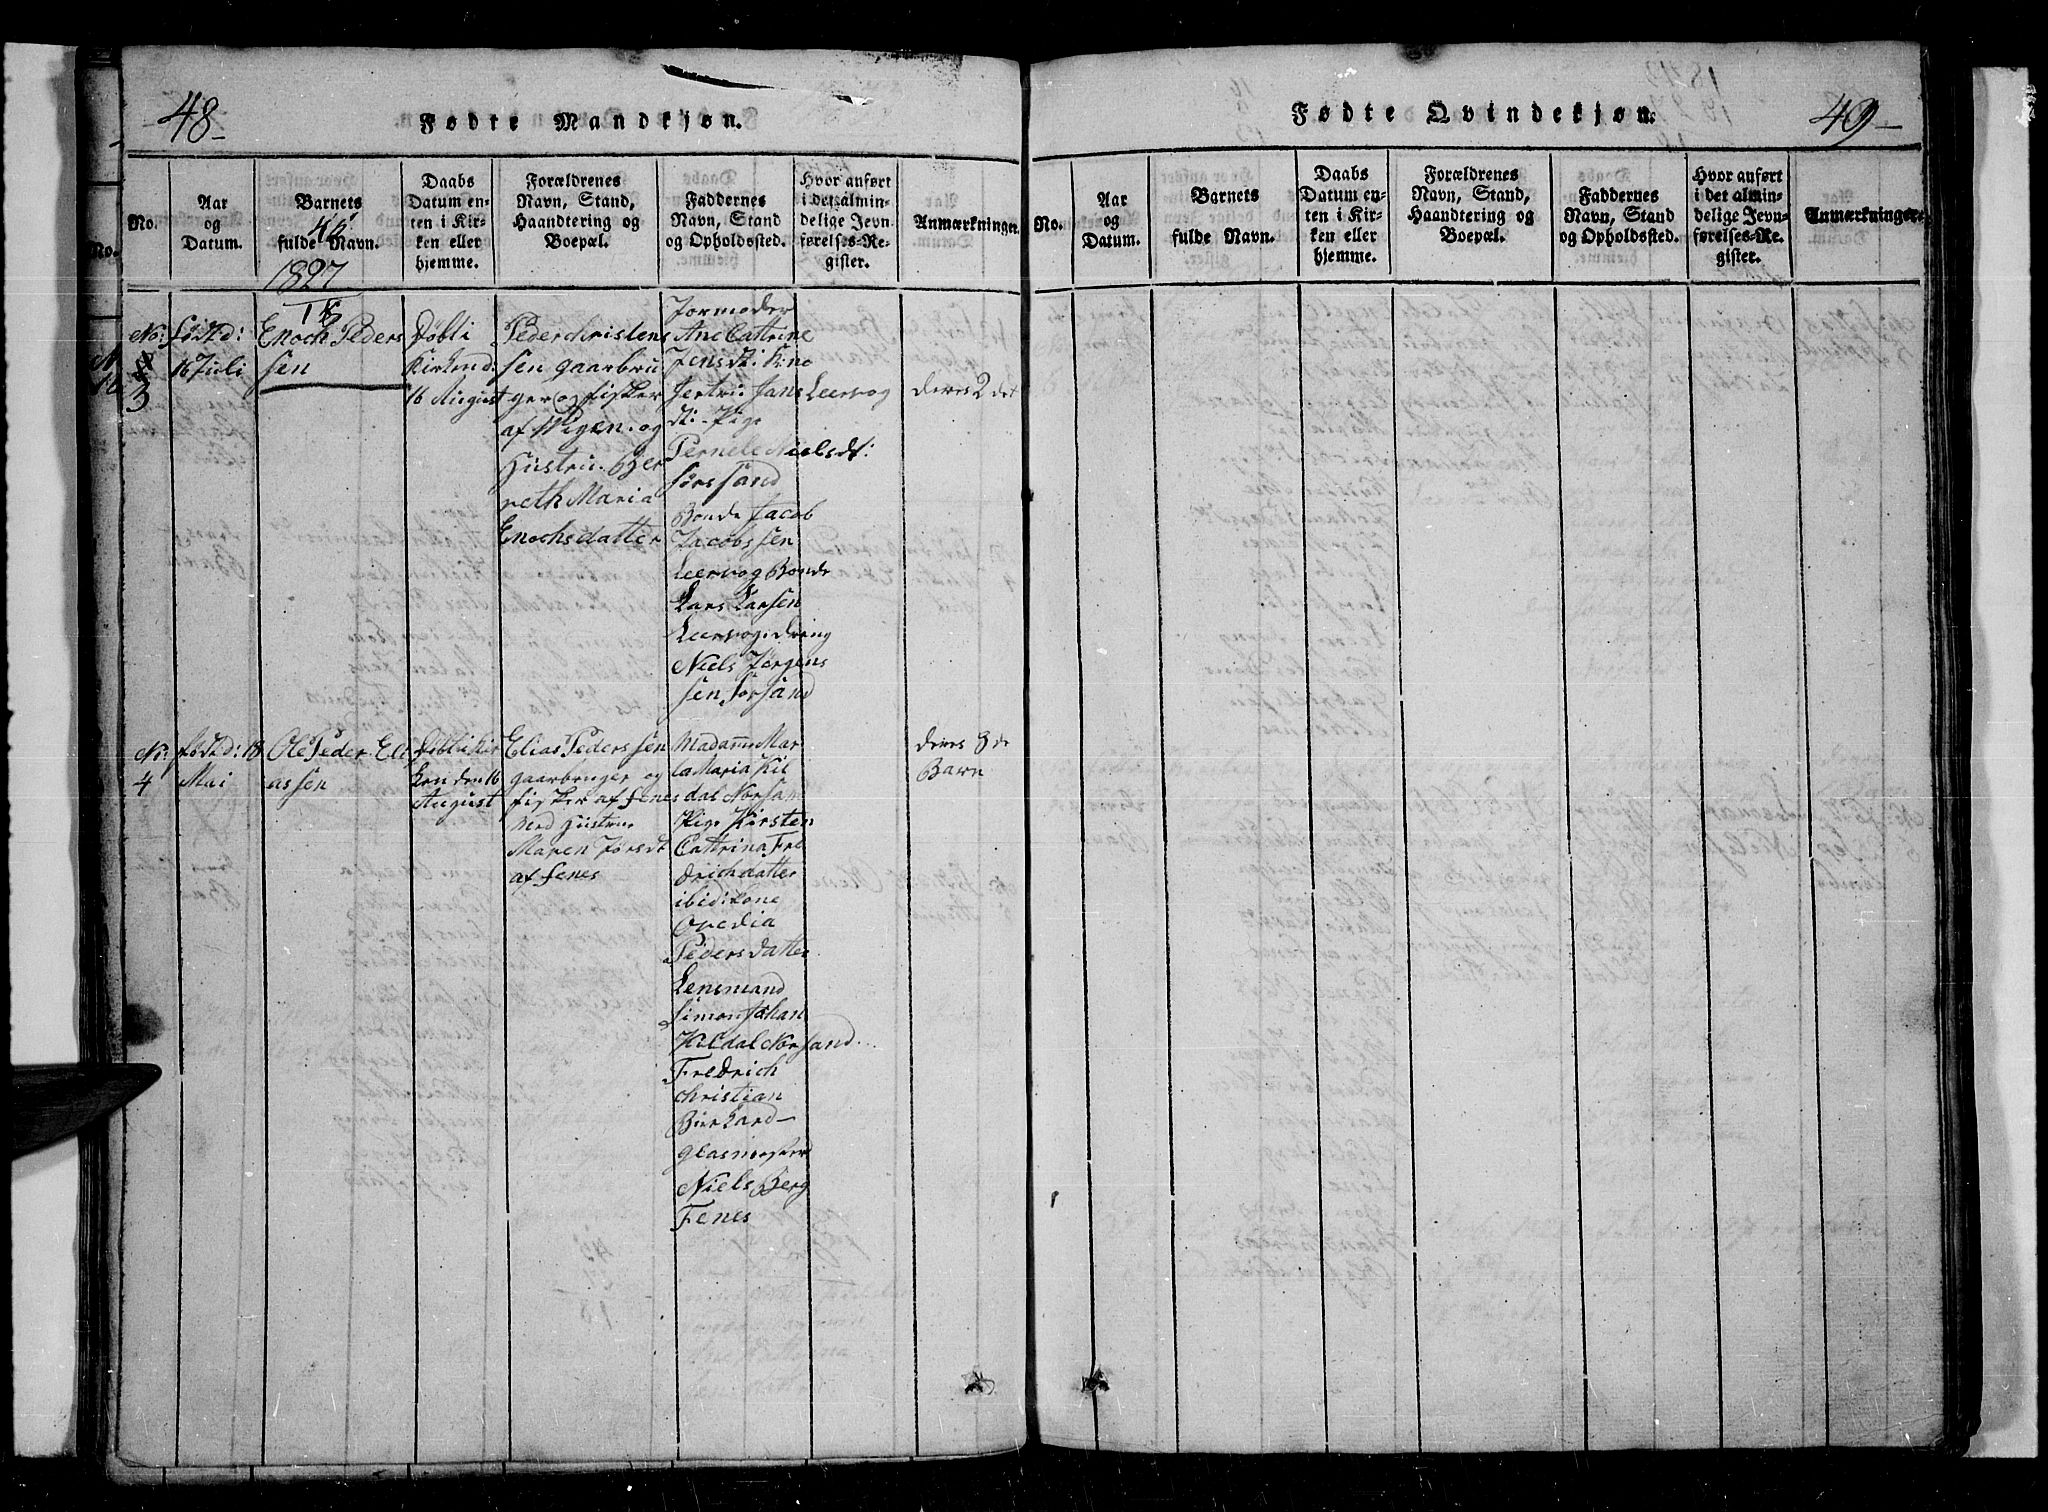 48
Fødte Mandkjøn.
No.
Aar
og
Datum.
Barnets
fulde Navn.
Daabs
Datum en-
ten i Kir-
ken eller
hjemme.
Forældrenes
Navn, Stand,
Haandtering og
Boepæl.
Faddernes
Navn, Stand
og Opholdssted.
Hvor anført
i det almin-
delige Jevn-
førelses-Re-
gister.
Anmærkninger.
1827
18
No:
3
født d:
16 Juli
Enoch Peders
sen
Døbt i
Kirken d:
16 August
Peder Christens
sen gaarbru
ger og fisker
af Vigen. og
Hustru. Ber
reth Maria
Enochsdatter
Jormoder
Ane Cattrine
Jens dt: Kno
Jertru Jans Leervog
dt: Pige
Pernele Nielsdt:
sørssand
Bonde Jacob
Jacobssen
Leervog Bonde
Lars Larsen
Leervog: dreng
Niels Jørgens
sen, Sørsand
deres 2 det
No:
4
født d: 18
Mai
Ole Peder Eli
assen
døbt i Kir
ken den 16
August
Elias Pederssen
gaarbruger og
fisker af Fenes
Hustrue
Maren Jørsdt
af Fenes
Madame Mar
ta Maria Kil
dal Norsand
Pige Kirsten
Cattrina Fre
drichdatter
ibid: Kone
Ovedia
Pedersdatter
Lensmand
Simon Johan
Kildal Norsand
Fredrich
Christian
Birkard
Glasmester
Niels Berg
Fenes
deres 8 de
Barn
Fødte Qvindekjøn.
49
No.
Aar
og
Datum.
Barnets
fulde Navn.
Daabs
Datum en-
ten i Kir-
ken eller
hjemme.
Forældrenes
Navn, Stand,
Haandtering og
Boepæl.
Faddernes
Navn, Stand
og Opholdssted.
Hvor anført
i det almin-
delige Jevn-
førelses-Re-
gister.
Anmærkninger.